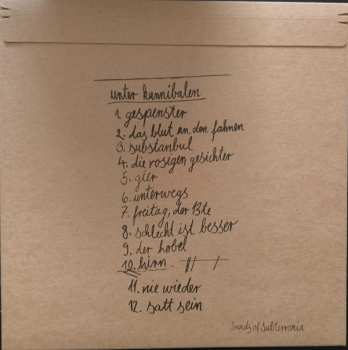 unter kannibalen
1. gespenster
2. das blut an den fahnen
3. substanbul
4. die rosigen gesichter
5. gier
6. unterwegs
7. freitag, der 13te
8. schlecht ist besser
9. der hobel
10. hirn
11. nie wieder
12. satt sein
Sounds of Subterrania